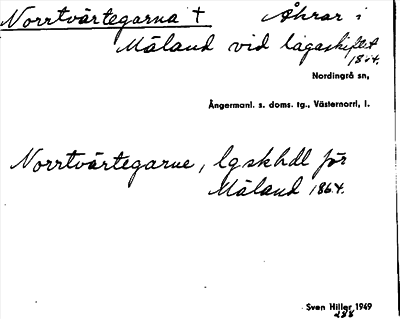 Norrtvärtegarna † Åkrar i
Måland vid lagaskiftet
1864.
Nordingrå sn,
Ångermanl. s. doms. tg., Västernorrl, l.
Norrtvärtegarne, lgskhdl för
Måland 1864.
Sven Hiller 1949
288